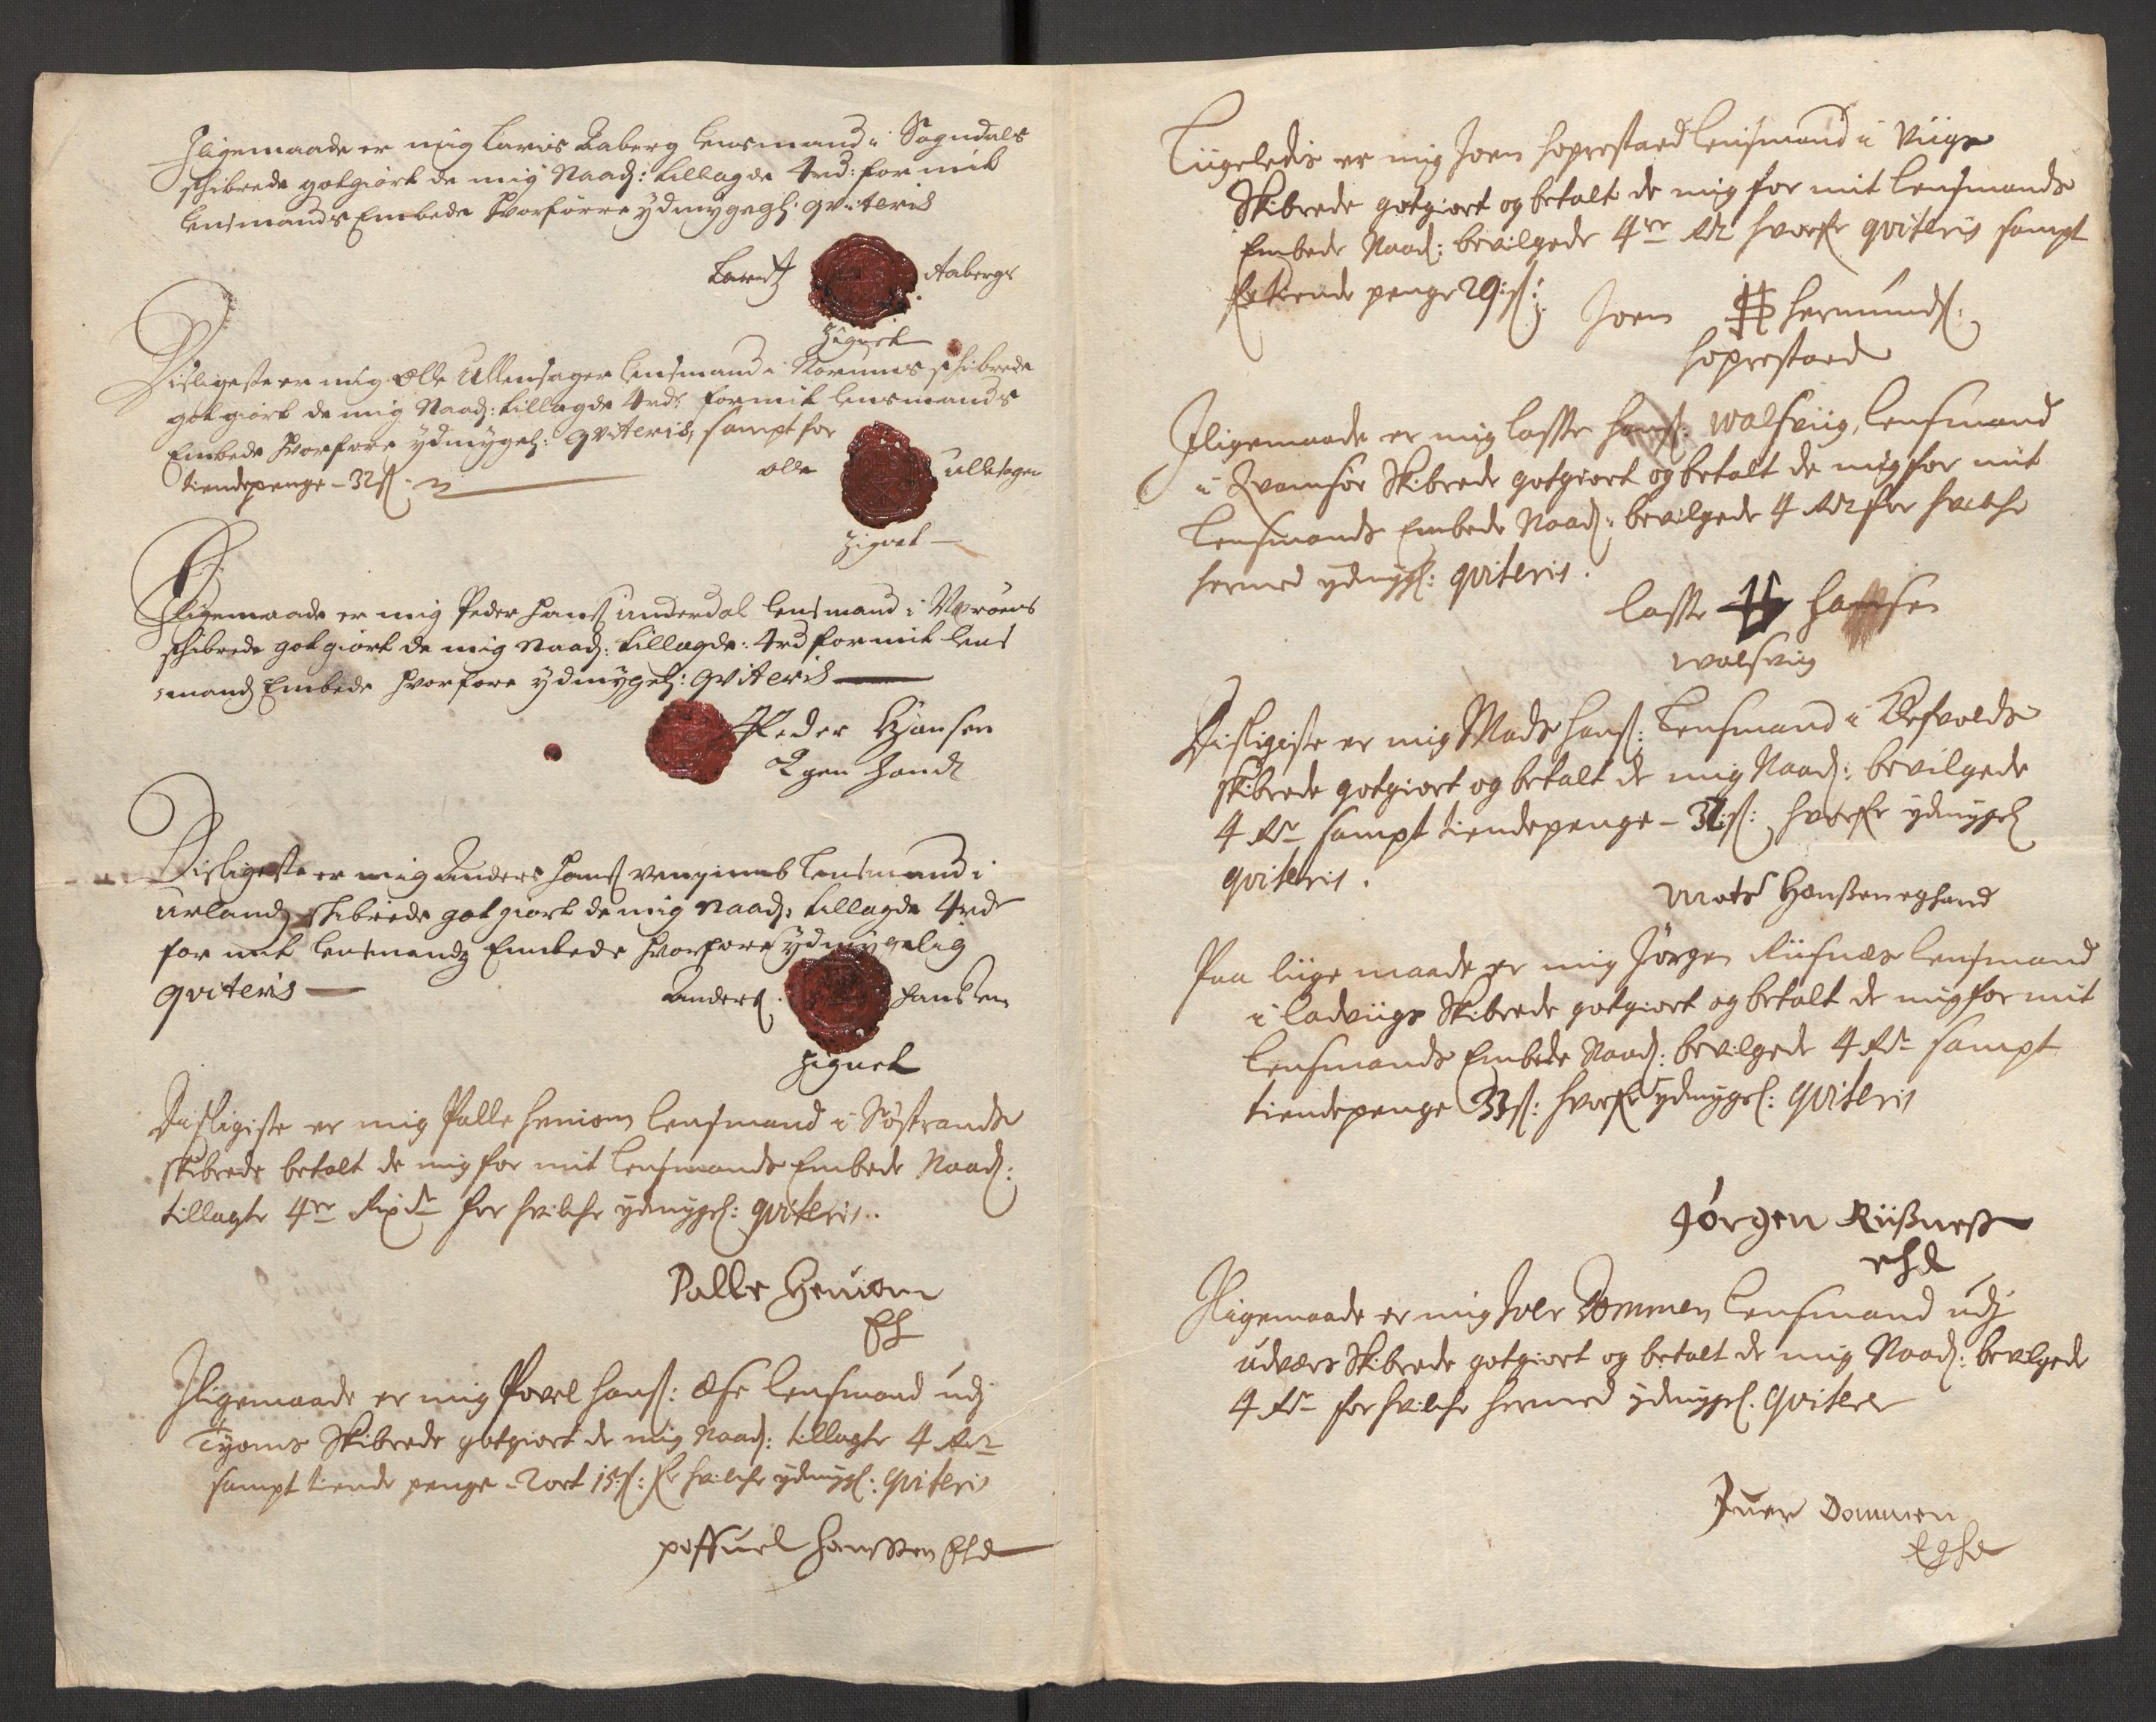 Jligemaade er mig Laris Aaberg Lensmand i Sogndals
schibrede gotgiort de mig Naad: tillagde 4rd: for mit
Lensmands Embede hvorforre ydmygeglj: qviteris
Laritz Aabergs
Zignet
Disligeste er mig Olle Ullensager Lensmand i Norumns schibrede
gotgiort de mig Naad: tillagde 4rdr formit Lensmands
Embede hvorfore ydmygelj: qviteris, sampt for
tiendepenge - 32 s
olle ullesager
Zignet
Jligemaade er mig Peder Hanss underdal Lensmand i Nærøens
schibrede gotgiort de mig naad: tillagde: 4rd formit Lens
mands Embede hvorfore ydmygelj: qviteris
Peder Hansen
Egen Handt
Disligeste er mig Anders Hanss Lensmand i
urlands schibrede gotgiort de mig naad: tillagde 4rdr
for mit Lensmandz Embede hvorfore ydmygelig
qviteris
Anders Hanssen
Zignet
Disligiste er mig Palle Heniom Lensmand i Søstrands
skibrede betalt de mig for mit Lensmands Embede Naad:
tillagte 4re Rixdr for hvilche ydmygel: qviteris.
Palle Heniom
Eh
Jligemaade er mig Povel Hanss: Æse Lensmand udj
Tyoms Skibrede gotgiort de mig Naad: tillagte 4 Rdr
sampt tiende penge - 2 ort 15 s: for hvilche ydmygl: qviteris
poffuel Hanssen Ehd
Liigeledis er mig Joen Hoprestaed Lensmand i Viigs
Skibrede gotgiort og betalt de mig for mit Lensmands
Embede Naad: bevilgede 4re Rdr hvorfor qviteris sampt
for tiende penge 29 s:
Joen Hermunds:
Hoprestaed
Jligemaade er mig Lasse Hanss: Walsviig, Lensmand
i Kvamsøe Skibrede gotgiort og betalt de mig for mit
Lensmands Embede Naad: bevilgede 4 Rdr for hvilche
hermed ydmygl: qviteris.
Lasse Hansen
Walsvig
Disligiste er mig Mads Hanss: Lensmand i Refvolds
skibrede gotgiort og betalt de mig Naad: bevilgede
4 Rdr sampt tiendepenge - 32 s: hvorfor ydmygel
qviteris.
Mats Hanssen eghand
Paa liige maade er mig Jørgen Riisnæs Lensmand
i Ladviigs Skibrede gotgiort og betalt de mig for mit
Lensmands Embede Naad: bevilgede 4 Rdr sampt
tiendepenge 33 s: hvorfor ydmygel: qviteris
Jørgen Riissness
ehd
Jligemaade er mig Iver Dommen Lensmand udj
udværs Skibrede gotgiort og betalt de mig Naad: bevilgede
4 Rdr for hvilche hermed ydmygel. qviteres
Iuer Dommen
Eghd